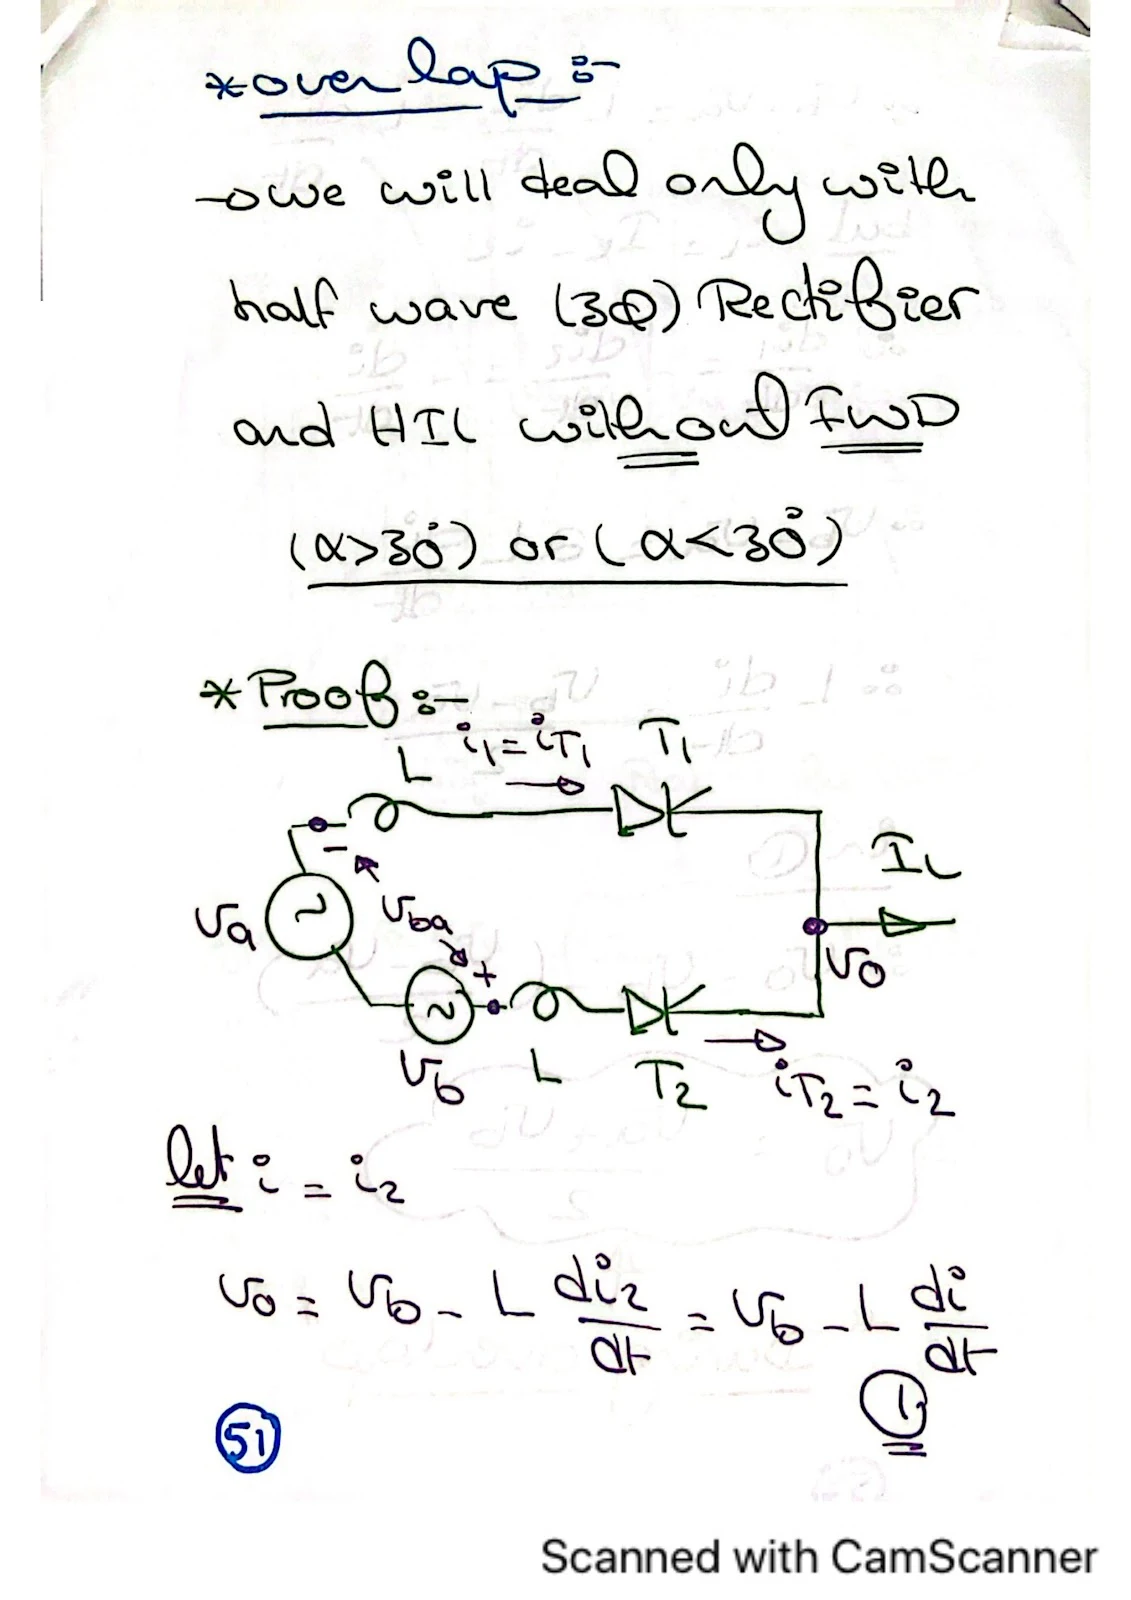 *overlap :-
→ we will deal only with
half wave (3Φ) Rectifier
and HIL without FWD
(α>30°) or (α<30°)
*Proof :-
i1 = iT1
T1
L
IL
va
vba
-
+
vo
vb
L
T2
iT2 = i2
let i = i2
vo = vb - L di2/dt = vb - L di/dt
1
51
Scanned with CamScanner